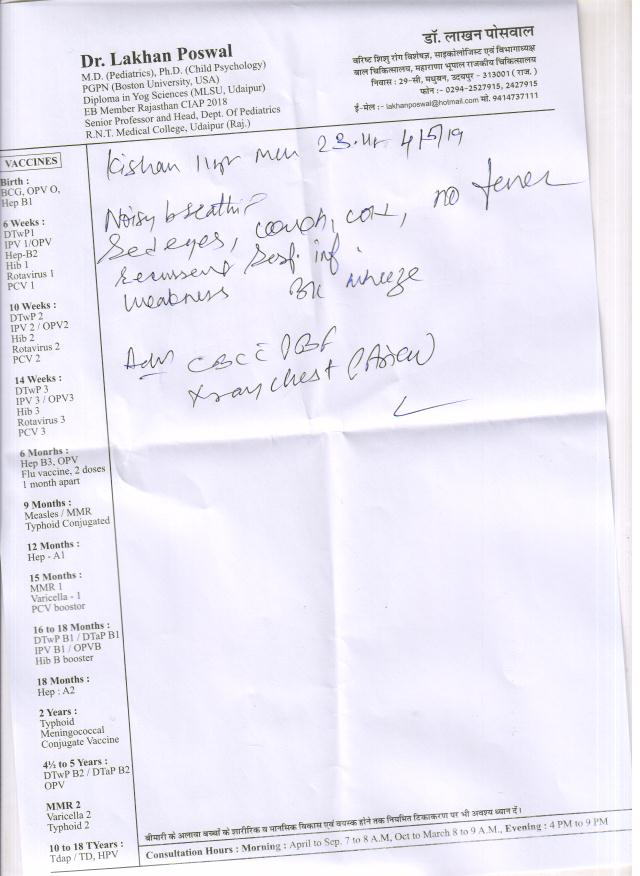 Dr. Lakhan Poswal
M.D. (Pediatrics), Ph.D. (Child Psychology)
PGPN (Boston University, USA)
Diploma in Yog Sciences (MLSU, Udaipur)
EB Member Rajasthan CIAP 2018
Senior Professor and Head, Dept. Of Pediatrics
R.N.T. Medical College, Udaipur (Raj.)
डॉ. लाखन पोसवाल
वरिष्ट शिशु रोग विशेषज्ञ, साइकोलॉजिस्ट एवं विभागाध्यक्ष
बाल चिकित्सालय, महाराणा भूपाल राजकीय चिकित्सालय
निवास : 29-सी, मधुबन, उदयपुर - 313001 ( राज. )
फोन :- 0294-2527915, 2427915
ई-मेल :- lakhanposwal@hotmail.com मो. 9414737111
Kishan 11yr 23. 4/5/19
Noisy
Red eyes, cough, cold, no fever
Recurrent Resp. inf.
weakness wheeze
Adv CBC PBF
Xray chest (PA view)
VACCINES
Birth :
BCG, OPV O,
Hep B1
6 Weeks :
DTwP1
IPV 1/OPV
Hep-B2
Hib 1
Rotavirus 1
PCV 1
10 Weeks :
DTwP 2
IPV 2 / OPV2
Hib 2
Rotavirus 2
PCV 2
14 Weeks :
DTwP 3
IPV 3 / OPV3
Hib 3
Rotavirus 3
PCV 3
6 Monrhs :
Hep B3, OPV
Flu vaccine, 2 doses
1 month apart
9 Months :
Measles / MMR
Typhoid Conjugated
12 Months :
Hep - A1
15 Months :
MMR 1
Varicella - 1
PCV boostor
16 to 18 Months :
DTwP B1 / DTaP B1
IPV B1 / OPVB
Hib B booster
18 Months :
Hep : A2
2 Years :
Typhoid
Meningococcal
Conjugate Vaccine
4½ to 5 Years :
DTwP B2 / DTaP B2
OPV
MMR 2
Varicella 2
Typhoid 2
10 to 18 TYears :
Tdap / TD, HPV
बीमारी के अलावा बच्चों के शारीरिक व मानसिक विकास एवं वयस्क होने तक नियमित टिकाकरण पर भी अवश्य ध्यान दें।
Consultation Hours : Morning : April to Sep. 7 to 8 A.M, Oct to March 8 to 9 A.M., Evening : 4 PM to 9 PM